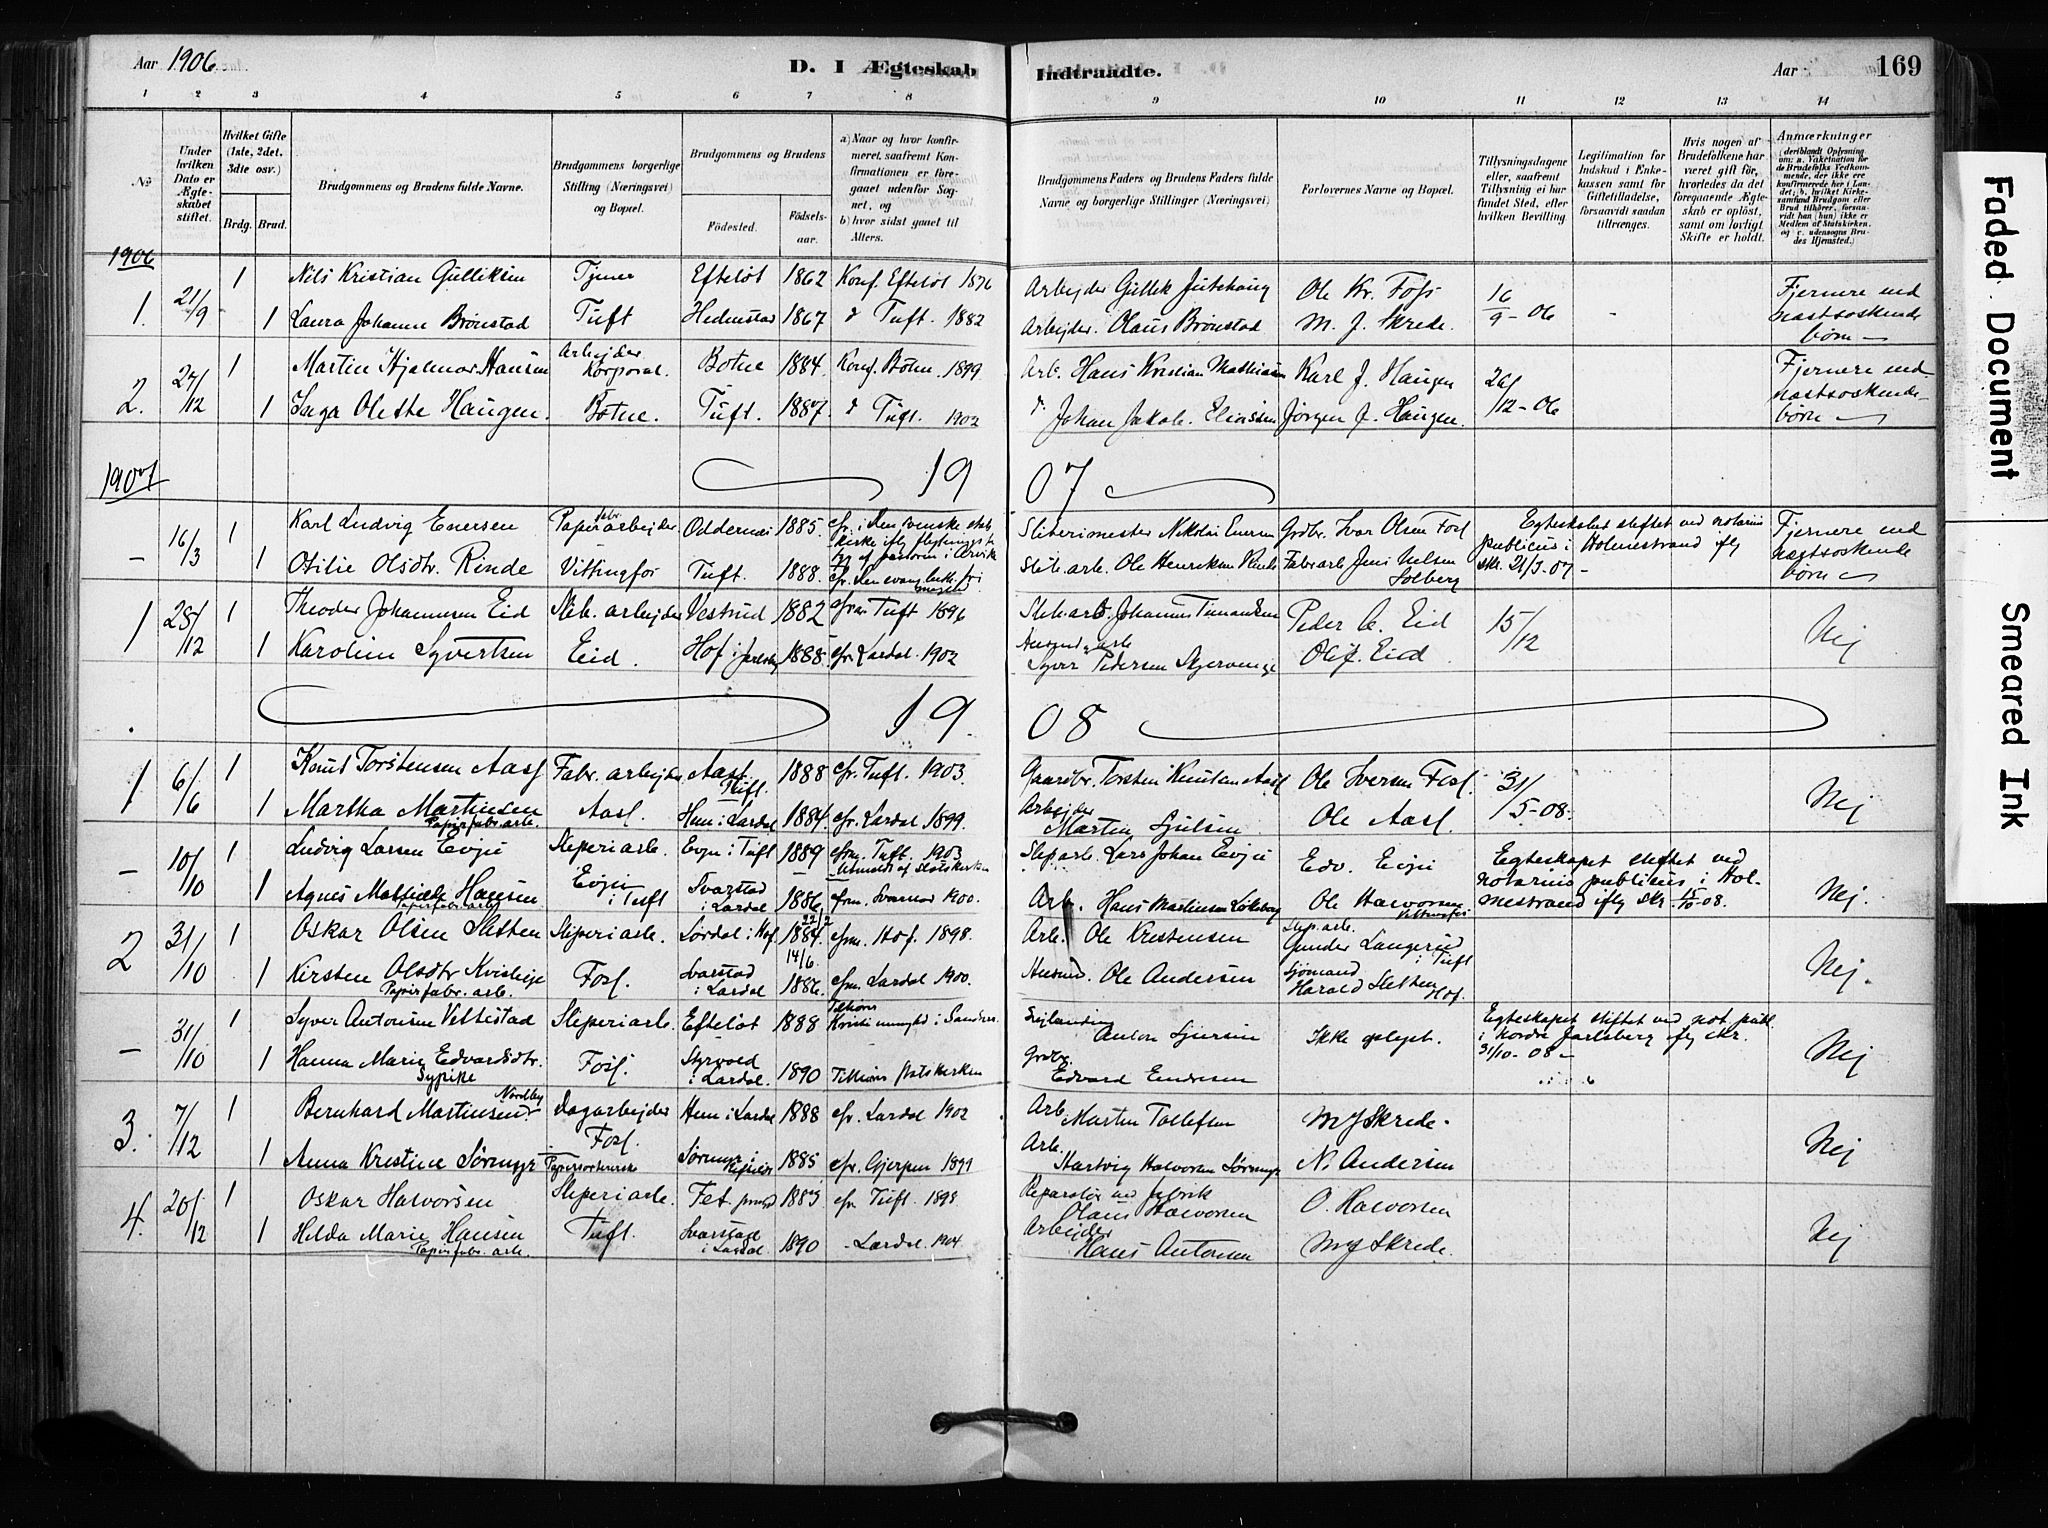 Aar 1906. D. I Ægteskab Indtraadte. Aar 169
1 2 3 4 5 6 7 8 9 10 11 12 13 14
No
Under hvilken Dato er Ægteskabet stiftet.
Hvilket Gifte (1ste, 2det, 3die osv.)
Brdg. Brud.
Brudgommens og Brudens fulde Navne.
Brudgommens borgerlige Stilling (Næringsvei) og Bopæl.
Brudgommens og Brudens
Fødested. Fødselsaar.
a) Naar og hvor konfirmeret, saafremt Konfirmationen er foregaaet udenfor Sognet, og
b) hvor sidst gaaet til Alters.
Brudgommens Faders og Brudens Faders fulde Navne og borgerlige Stillinger (Næringsvei)
Forlovernes Navne og Bopæl.
Tillysningsdagene eller, saafremt Tillysning ei har fundet Sted, efter hvilken Bevilling.
Legitimation for Indskud i Enkekassen samt for Giftetilladelse, forsaavidt saadan tiltrænges.
Hvis nogen af Brudefolkene har været gift før, hvorledes da det foregaaende Ægteskab er opløst, samt om lovligt Skifte er holdt.
Anmærkninger (deriblandt Oplysning om: a. Vakcination for de Brudefolks Vedkommende, der ikke ere konfirmerede her i Landet; b. hvilket Kirkesamfund Brudgom eller Brud tilhører, forsaavidt han (hun) ikke er Medlem af Statskirken, og c. udensogns Brudes Hjemsted.)
1906
1. 21/9 1 Nils Kristian Gulliksen Tjener Efteløt 1862 Konf. Efteløt 1876 Arbejder Gullik Ole Kr. Foss 16/9-06 - - Fjernere end næstsøskende børn
1 Laura Johanne Brønstad Tuft Hedenstad 1867 " Tuft. 1882 Arbejder. Olaus Brønstad M. J. Skrede.
2. 27/12 1 Martin Hjalmar Hansen Arbejder Korporal. Botne 1884. Konf. Botne. 1899 Arb. Hans Kristian Mathiasen Karl J. Haugen 26/12-06 Fjernere end næstsøskende børn
1 Inga Olette Haugen. Botne. Tuft. 1887. " Tuft. 1902 " Johan Jakob Eliassen Jørgen J. Haugen.
1907 19 07
- 16/3 1 Karl Ludvig Enersen Papirfabr. arbejder Oddernes 1885. cfr. i den svenske statskirke ifly Nikolai Enersen Grdbr. Ivar Olsen Fosl Egteskabet stiftet ved notarius publicus i Holmestrand ifly skr. 21/3-07 - Fjernere end næstsøskende børn
1 Otilie Olsdtr. Rinde Vittingfos Tuft. 1888. cfr. den evang. luth. fri Slib. arb. Ole Henriksen Rinde Fabr. arb. Jens Nelsen Solberg
1 28/12 1 Theodor Johannesen Eid Slib. arbejder Vestrud 1882 cfr. Tuft 1896 Slib. arb. Johannes Peder C. Eid 15/12 Nej
1 Karoline Syvertsen Eid. Hof i Jarlsberg 1888 cfr. Lardal. 1902 Syver Pedersen Olif. Eid
19 08
1 6/6 1 Knut Torstensen Aasl Fabr. arbejder Aasl Tuft. 1888 cfr. Tuft. 1903. Gaardbr. Torsten Knutsen Aasl Ole Iversen Fosl. 31/5-08. Nej
1 Martha Martinsen Papirfabr. arb. Aasl. Hem i Lardal 1884. cfr. Lardal 1899. Arbejder Martin
Ole Aasl.
- 10/10 1 Ludvig Larsen Evju Sliperiarb. Evju i Tuft 1889 cfrm. Tuft. 1903 Utmeldt af Statskirken Slip. arb. Lars Johan Evju Edv. Evju Egteskapet stiftet ved notarius publicus i Holmestrand ifly skr. 15/10-08. Nej.
1 Agnes Mathilde Hansen Papirfabr. arb. Evju i Tuft Svarstad i Lardal 1886 cfrm. Svarstad 1900. Arb. Hans Martinsen Ole Halvorsen Vittingfos
2 31/10 1 Oskar Olsen Sletten Sliperiarb. Sørdal i Hof 22/2 1884. cfrm. Hof. 1898. Arb. Ole Kristensen Slip. arb. Gunder Langerud i Tuft Nej.
1 Kirsten Olsdtr Papirfabr. arb. Fosl. Svarstad i Lardal 14/6 1886. cfrm. Lardal 1900. Husmd. Ole Andersen Sjømand Harald Sletten Hof.
- 31/10 1 Syver Antonsen Vettestad Sliperiarb. Efteløt 1888 Tilhører i Sandsv. Anton
Ikke oplyst. Egteskapet stiftet ved not. publ. i Nordre Jarlsberg ifly skr. 31/10-08 - Nej
1 Hanna Marie Edvardsdtr. Sypike Fosl. Styrvold i Lardal. 1890 Tilhører statskirken Grdbr. Edvard Endresen
3. 7/12 1 Bernhard Martinsen Nordby Dagarbejder Fosl. Hem i Lardal 1888 cfr. Lardal 1902 Arb. Martin Tollefsen M J Skrede. Nej
1 Anna Kristine Sørmyr Sørmyr i 1885 cfr. Gjerpen 1899 Arb. Hartvig Halvorsen Sørmyr N. Andersen
4. 20/12 1 Oskar Halvorsen Sliperiarb. Fet 1883 cfr. Tuft. 1898 Reparatør ved fabrik Olaus Halvorsen O. Halvorsen Nej
1 Hilda Marie Hansen Papirfabr. arb. Tuft. Svarstad i Lardal 1890 - Lardal. 1904 Arbejder Hans Antonsen M J Skrede.
Faded Document
Smeared Ink